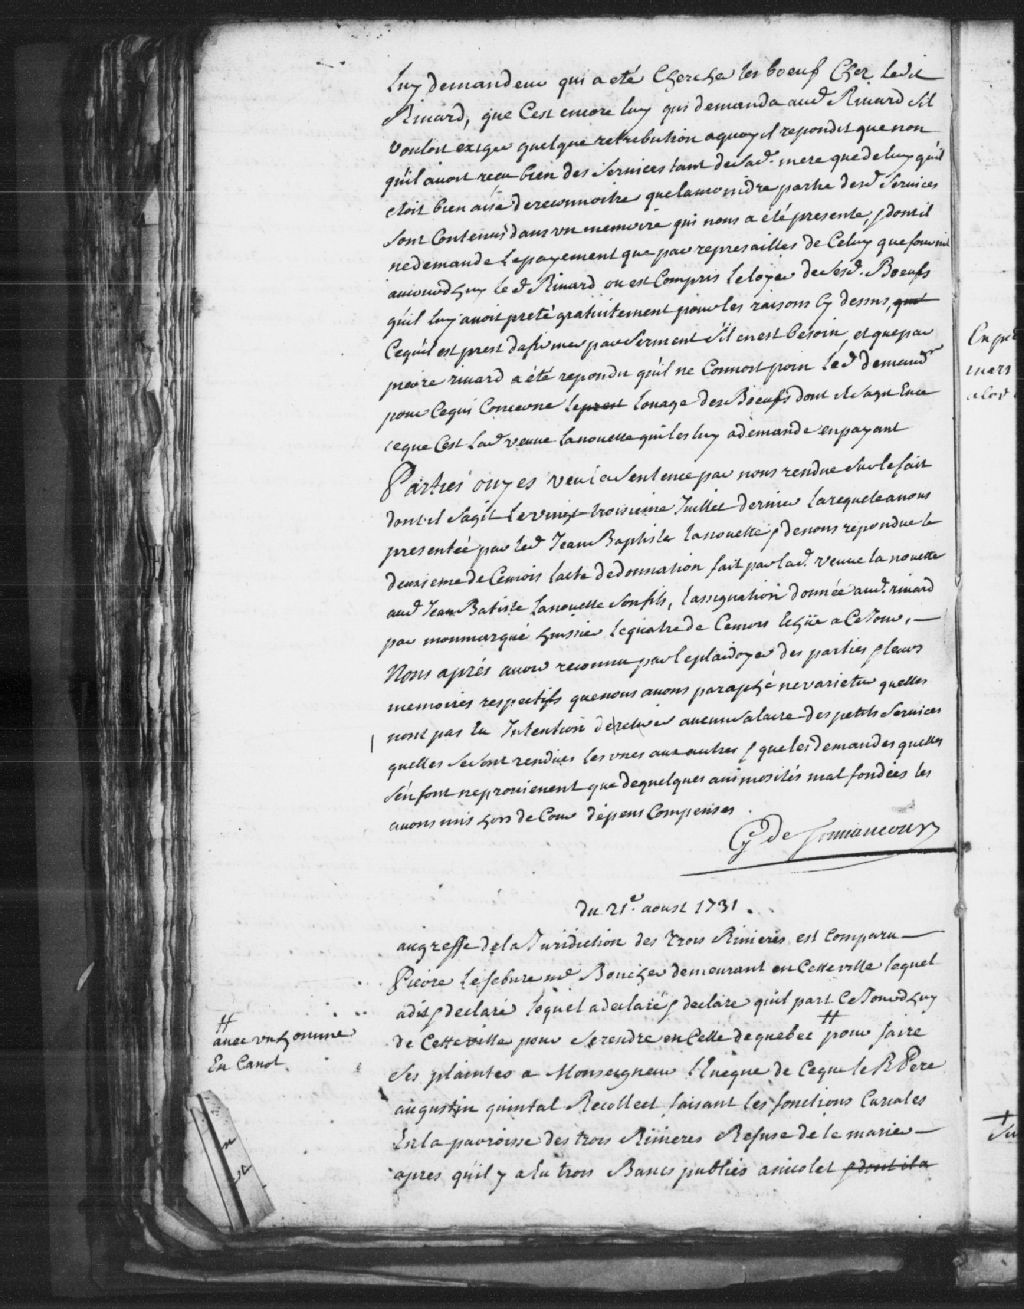 Luy demandeur qui a eté Cherche les boeuf Chez ledit
Rivard, que Cest encore luy qui demanda aud Rivard sil
vouloit exiger quelque retribution aquoy il repondit que non
quil avoit receu bien des Services tant de sad. mere que de luy quil
etoit bien aise de reconnoitre que la moindre partie desd Services
sont Contenus dans un memoire qui nous a eté presente, & dont il
ne demande lepayement que par represailles de Celuy que fournit
aujourdhuy le d Rivard ou est Compris le loyer de sesd. Boeufs
quil luy avoit preté gratuitement pour les raisons Cy dessus, que
Cequil est prest dafirmer par Serment sil en est besoin, et que par
pierre rivard a été repondu quil ne Connoit poin led demandr
pour Cequi Concerne leprest louage des Boeufs dont il sagit Entre
ceque Cest lad veuve lanouette qui les luy a demandé en payant
Parties ouyes veu la Sentence par nous rendue sur le fait
dont il Sagit Le vingt troisieme Juillet dernier la requete anous
presentée par led Jean Baptiste lanouette & denous repondue le
deuxieme de Cemois lacte dedonnation fait par lad. veuve la nouette
aud Jean Batiste lanouette son fils, lassignation donnée aud. rivard
par monmarqué huissier le quatre de Cemois le güe a Ce Jour, —
Nous aprés avoir reconnu par le pladoyer des parties & leurs
memoires respectifs que nous avons paraphé nevarietur quelles
nont pas Eu Intention deretirer aucun salaire des petits Services
quelles se sont rendües les unes aux autres & que les demandes quelles
sen font neprovienent que dequelques animosités mal fondées les
avons mis hors de Cour dépens Compensés
G de Tonnancour
du 21e. aoust 1731.
au greffe de la Juridiction des trois Rivieres est Comparu —
Pierre Lefebure md Boucher demeurant en Cette ville lequel
adit & declaré loquel a declaré & declare quil part Ce Jourdhuy
de Cette ville pour se rendre en Celle de quebec ⧺ pour faire
⧺
avec un homme
En Canot.
Ses plaintes a Monseigneur lEveque de Ceque le R Pere
augustin quintal Recollect faisant les fonctions Curiales
En la parroisse des trois Rivieres Refuse de le marier —
apres quil y a Eu trois Bancs publiés a nicolet & dont il a